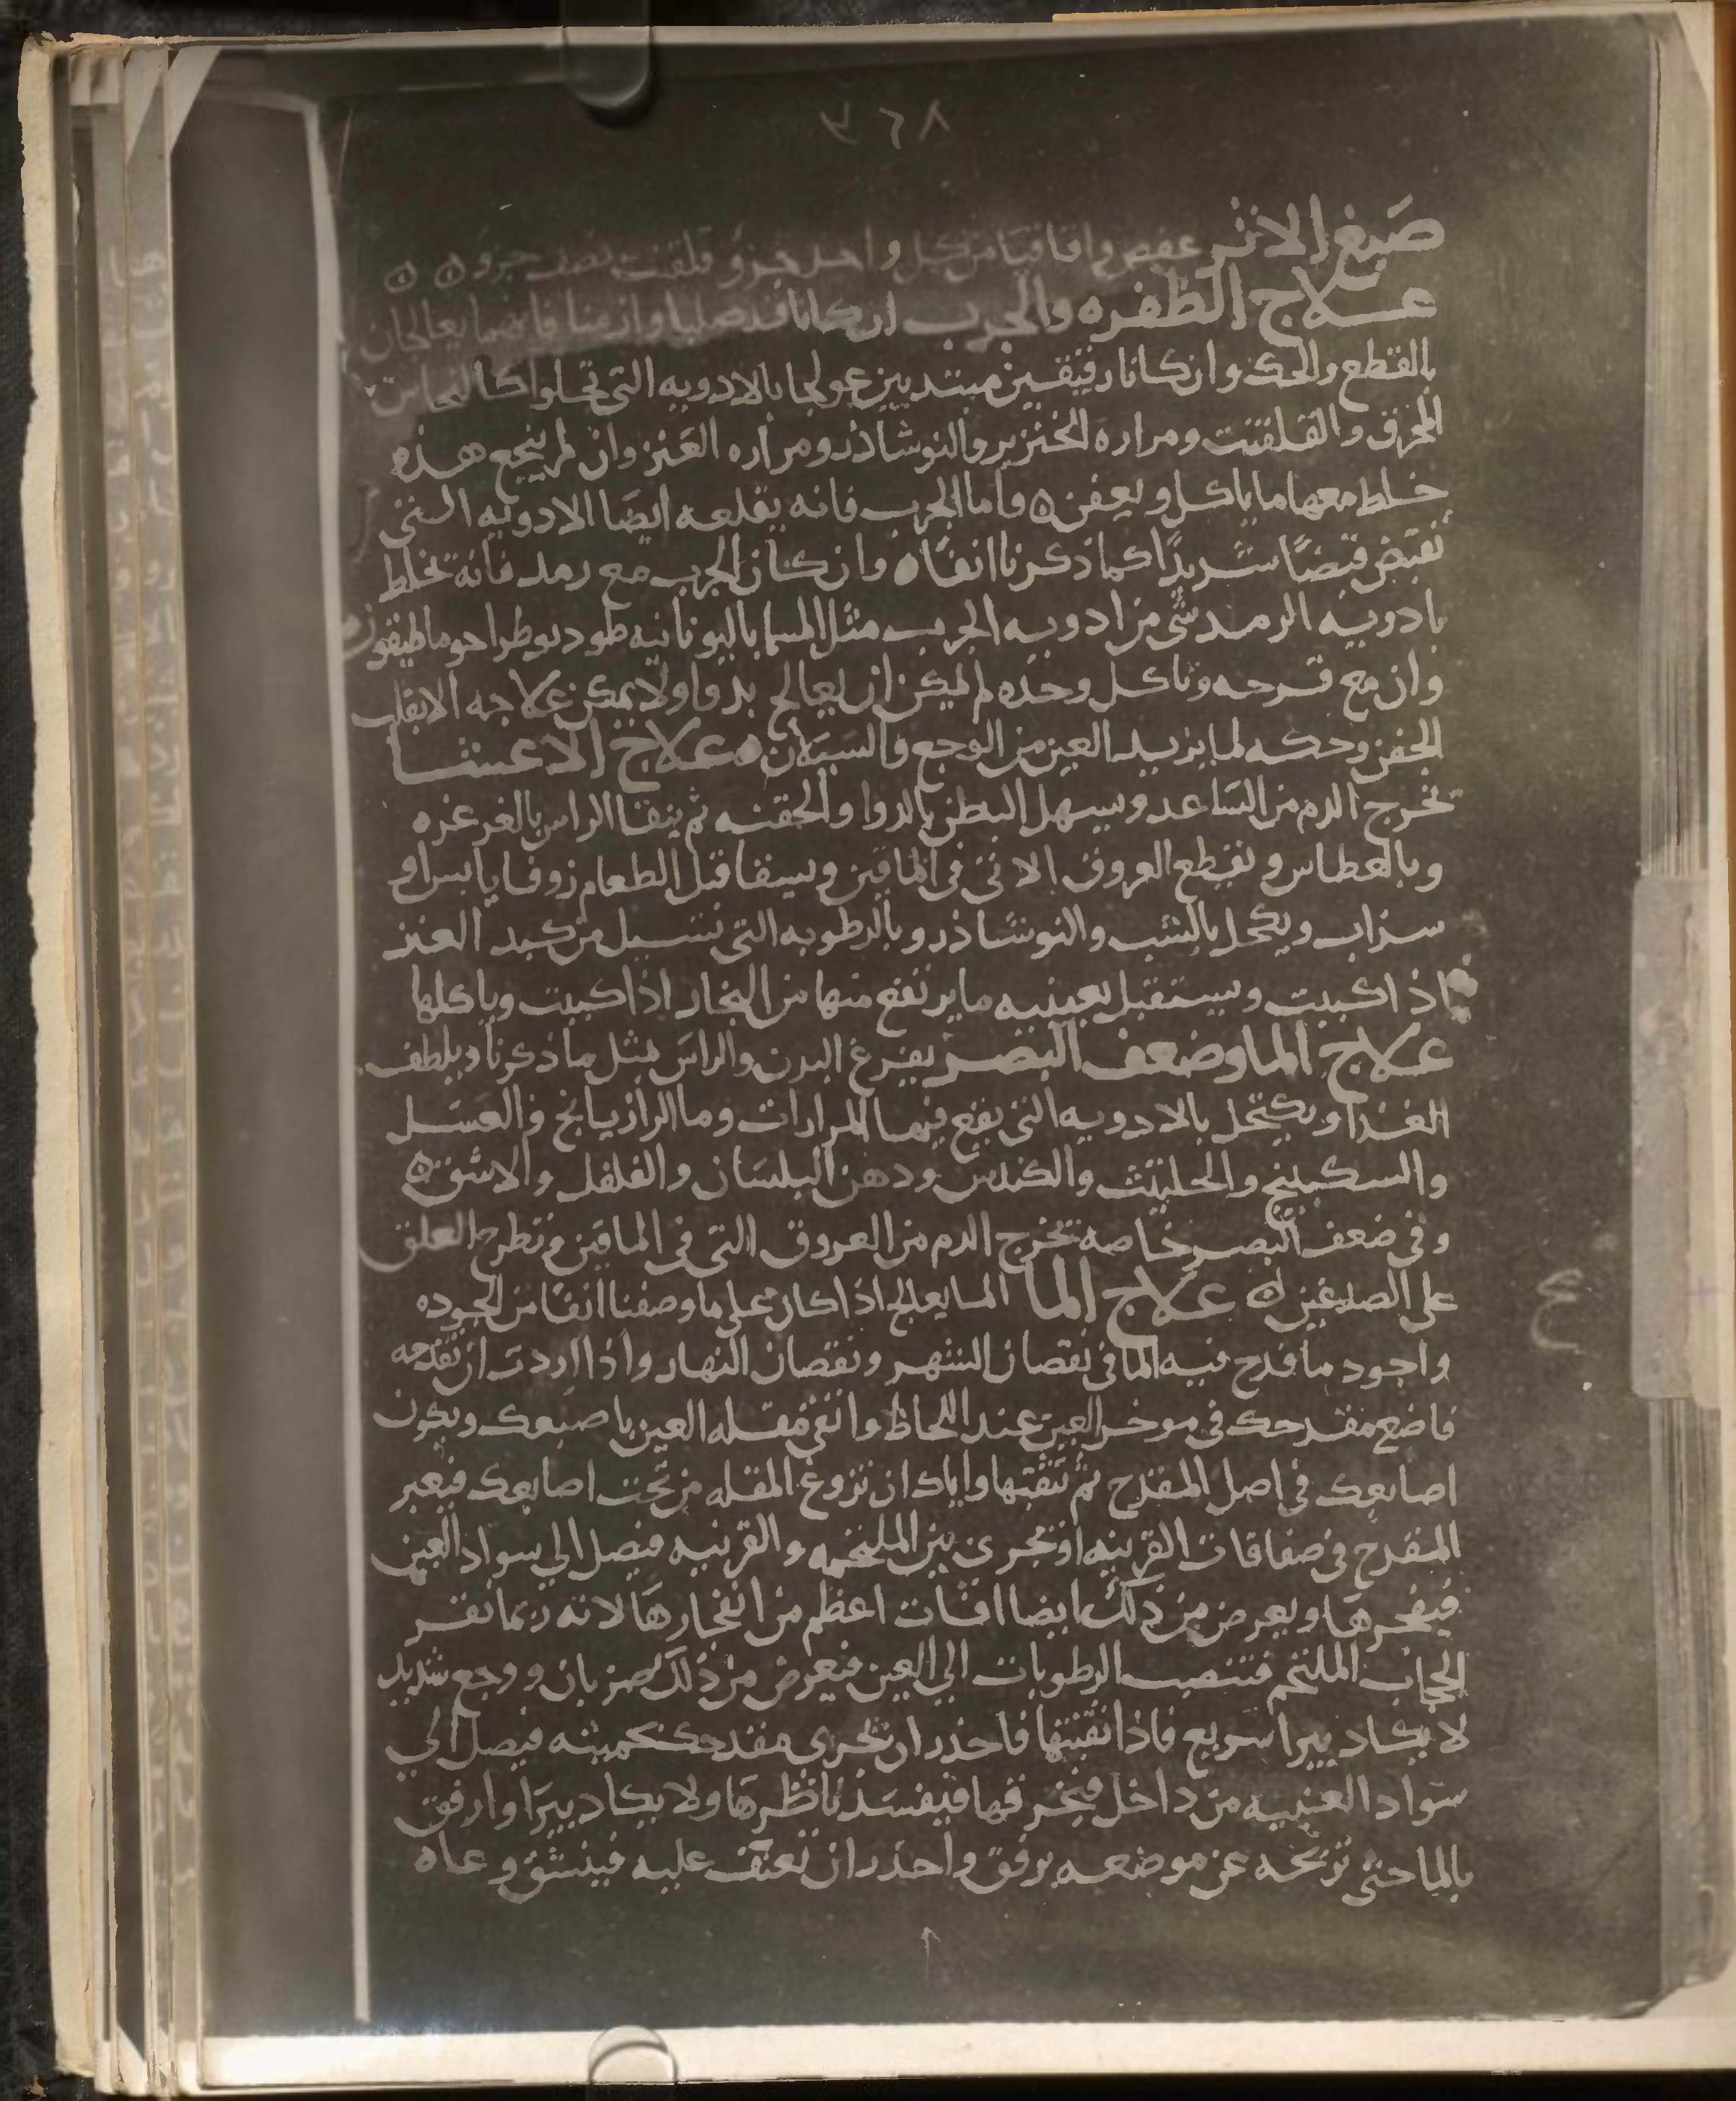 ٣٦٨
صبغ الاثر عفص واقاقيا من كل واحد جزو قلقنت نصف جزو ٥ ٥
علاج الظفره والجرب ان كانا قد صلبا وازمنا فانهما يعالجان
بالقطع والحك وان كانا رقيقين مبتديين عولجا بالادويه التي تجلوا كالنحاس
المحرق والقلقنت ومراره الخنزير والنوشاذر ومراره العنز وان لم ينجع هذه
خلط معها ما ياكل ويعفن ٥ واما الجرب فانه يقلعه ايضا الادويه التي
تقبض قبضا شديدا كما ذكرنا انفا ٥ وان كان الجرب مع رمد فانه تخلط
بادويه الرمد شي من ادويه الجرب مثل المسما باليونانيه
وان مع قرحه وتاكل وحده لم يمكن ان يعالج بدوا ولا يمكن علاجه الا بقلب
الجفن وحكه لما يزيد العين من الوجع والسيلان ٥ علاج الاعشا
تخرج الدم من الساعد ويسهل البطن بالدوا والحقنه ثم ينقا الراس بالغرغره
وبالعطاس وتقطع العروق الاتي في الماقين ويسقا قبل الطعام زوفا يابس او
سذاب ويكحل بالشب والنوشاذر وبالرطوبه التي تسيل من كبد العنز
اذا كببت ويستقبل بعينيه ما يرتفع منها من البخار اذا كببت وياكلها
علاج الما وضعف البصر يفرغ البدن والراس مثل ما ذكرنا ويلطف
الغذا ويكتحل بالادويه التي يقع فيها المرارات وما الرازيانج والعسل
والسكبينج والحلتيت والكندس ودهن البلسان والفلفل والاشق ٥
وفي ضعف البصر خاصه تخرج الدم من العروق التي في الماقين وتطرح العلق
على الصدغين ٥ علاج الما الما يعالج اذا كان على ما وصفنا انفا من الجوده
واجود ما قدح فيه الما في نقصان الشهر ونقصان النهار واذا اردت ان تقدحه
فاضع مقدحك في موخر العين عند اللحاظ واتقي مقله العين باصبعك ويكون
اصابعك في اصل المقدح ثم تثقبها واياك ان تزوغ المقله من تحت اصابعك فيعبر
المقدح في صفاقات القرنيه او تجري بين الملتحمه والقرنيه فيصل الي سواد العين
فيفجرها ويعرض من ذلك ايضا افات اعظم من انفجارها لانه ربما نقر
الحجاب الملتحم فتنصب الرطوبات الي العين فيعرض من ذلك ضربان ووجع شديد
لا يكاد يبرا سريع فاذا ثقبتها فاحذر ان تجري مقدحك فيصل الي
سواد العنبيه من داخل فيخرقها فيفسد ناظرها ولا يكاد يبرا وارفق
بالما حتى تزيحه عن موضعه برفق واحذر ان تعنف عليه فينشق وعاه
ع